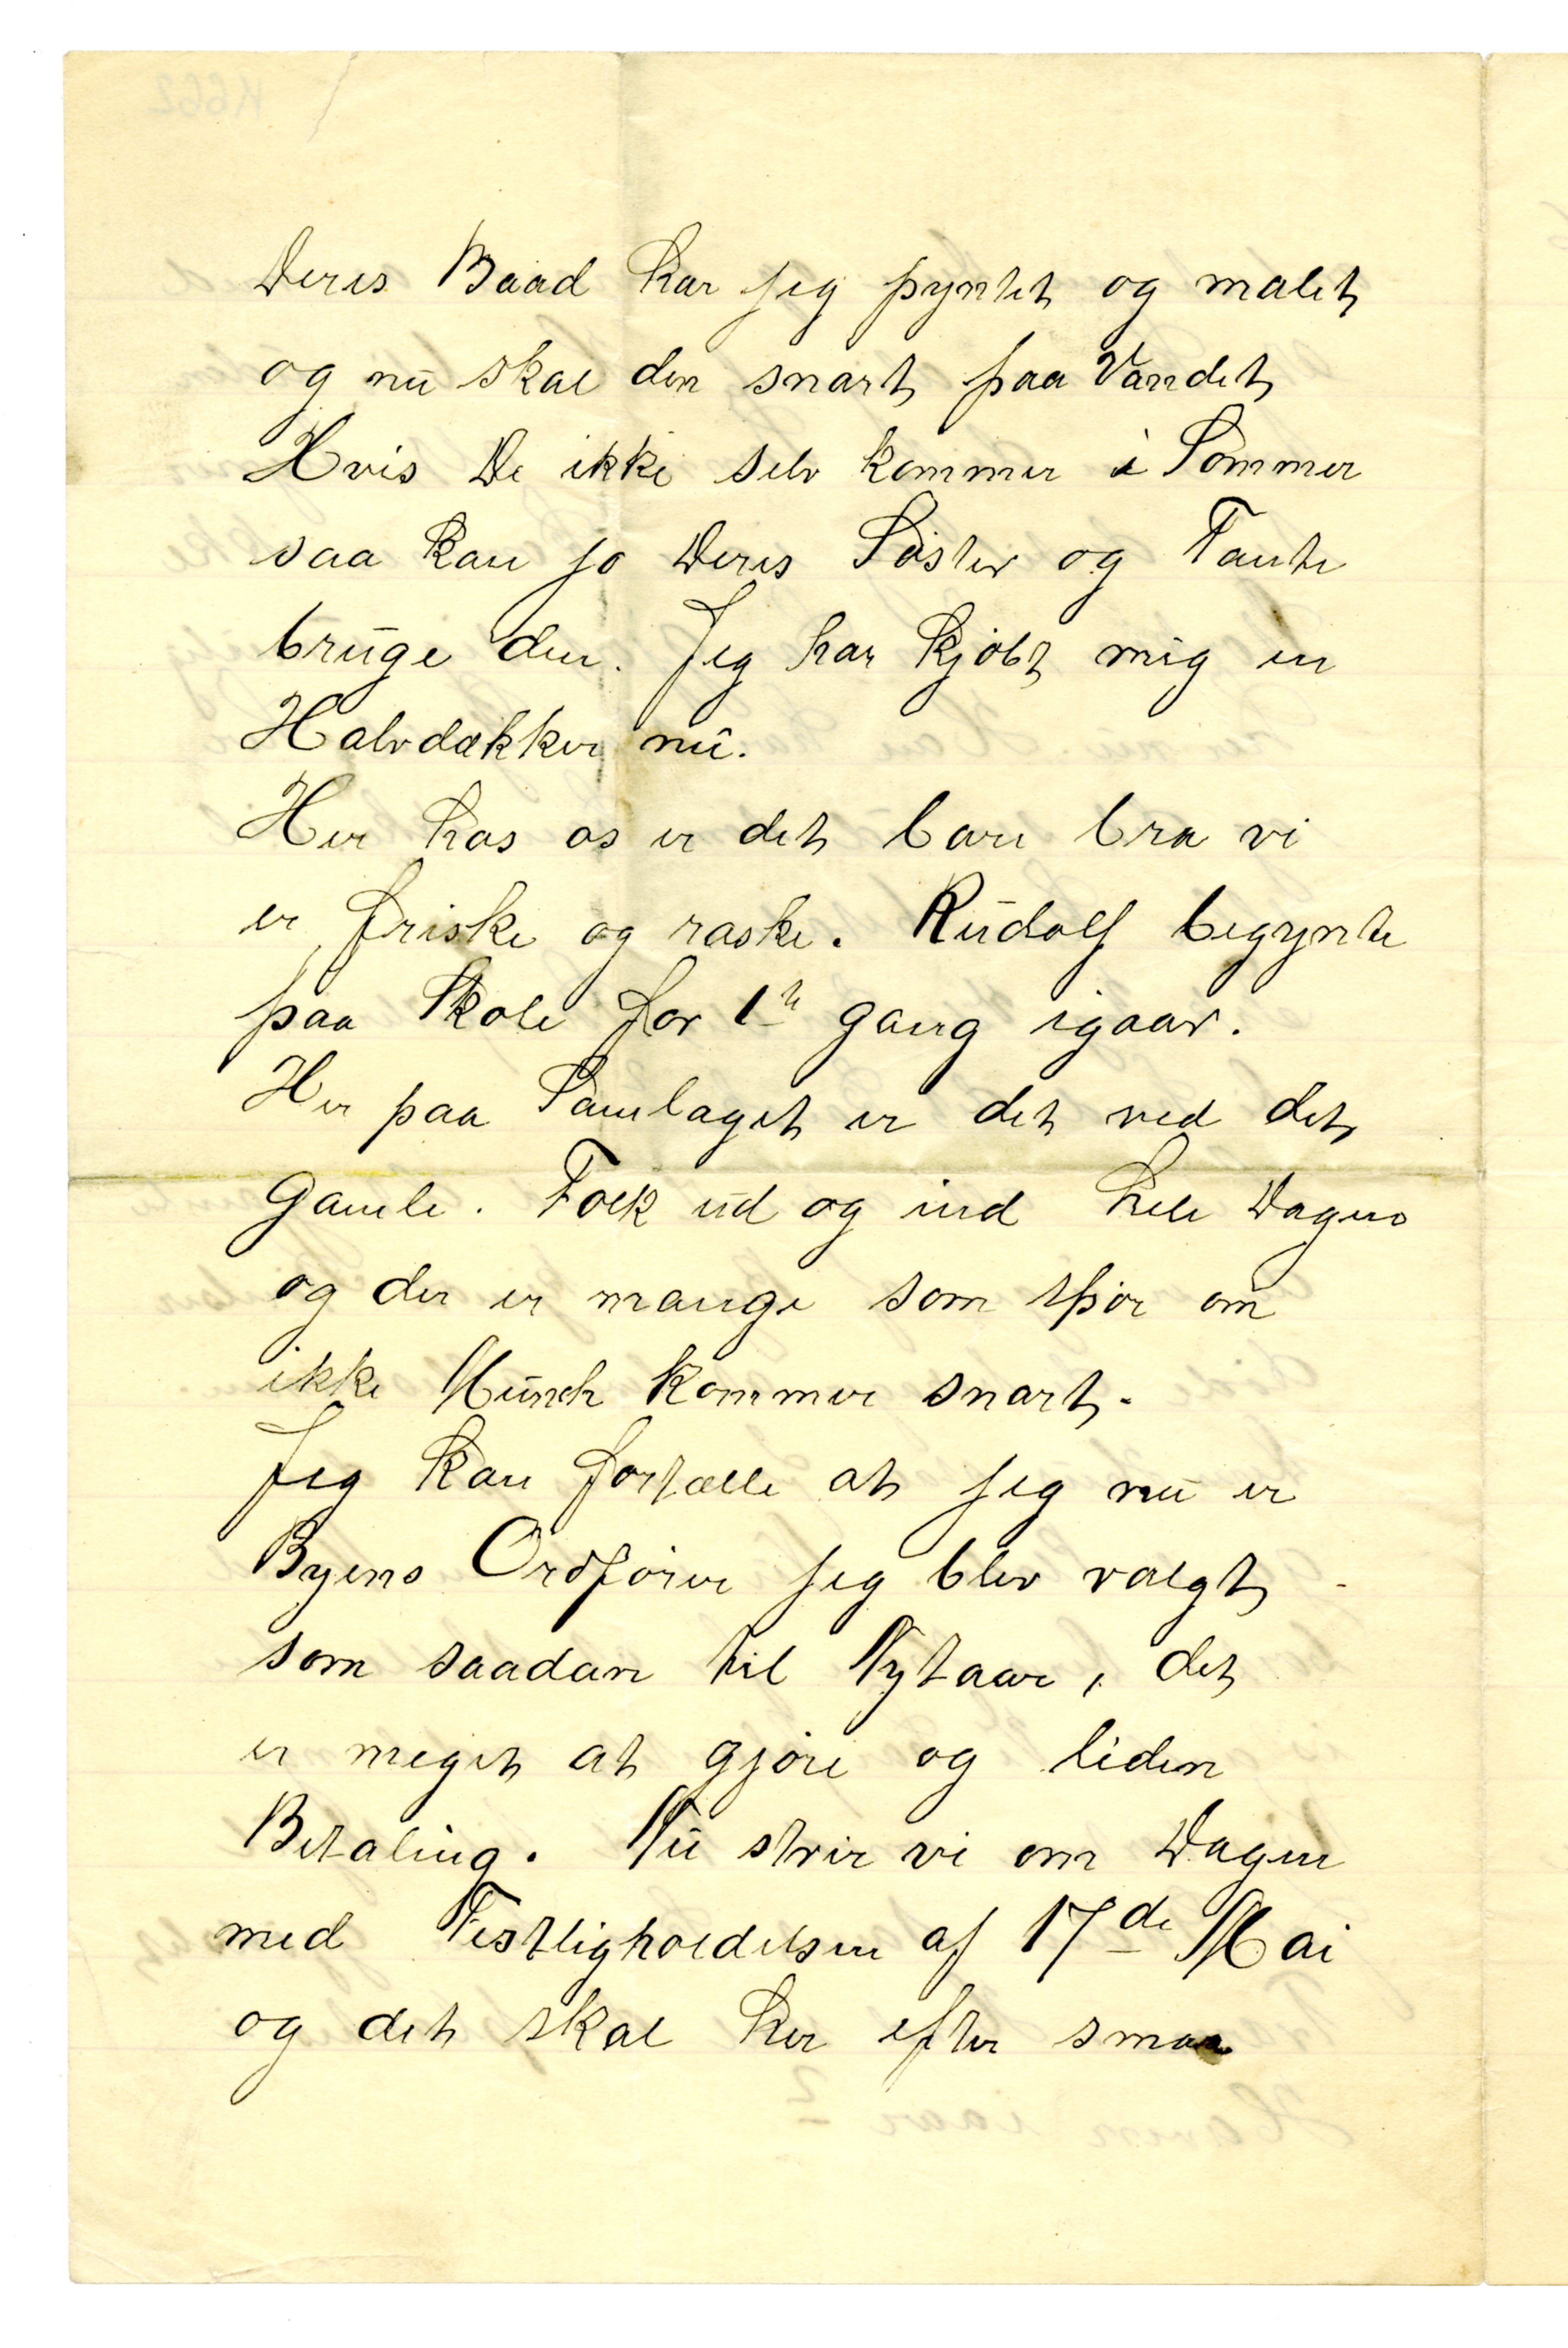 Deres Baad har jeg pyntet og malet
og nu skal den snart paa Vandet
Hvis De ikke selv kommer i Sommer
saa kan jo Deres Søster og Tante
bruge den. Jeg har kjøbt mig en
Halvdækker nu.
Her hos os er det bare bra vi
er friske og raske. Rudolf begynte
paa Skole for 1te gang igaar.
Her paa Samlaget er det ved det
Gamle. Folk ud og ind hele Dagen
og der er mange som spør om
ikke Munch kommer snart.
Jeg kan fortælle at jeg nu er
Byens Ordfører jeg blev valgt
som saadan til Nytaar, det
er meget at gjøre og liden
Betaling. Nu strir vi om Dagen
med Festligholdelsen af 17de Mai
og det skal her efter smaa